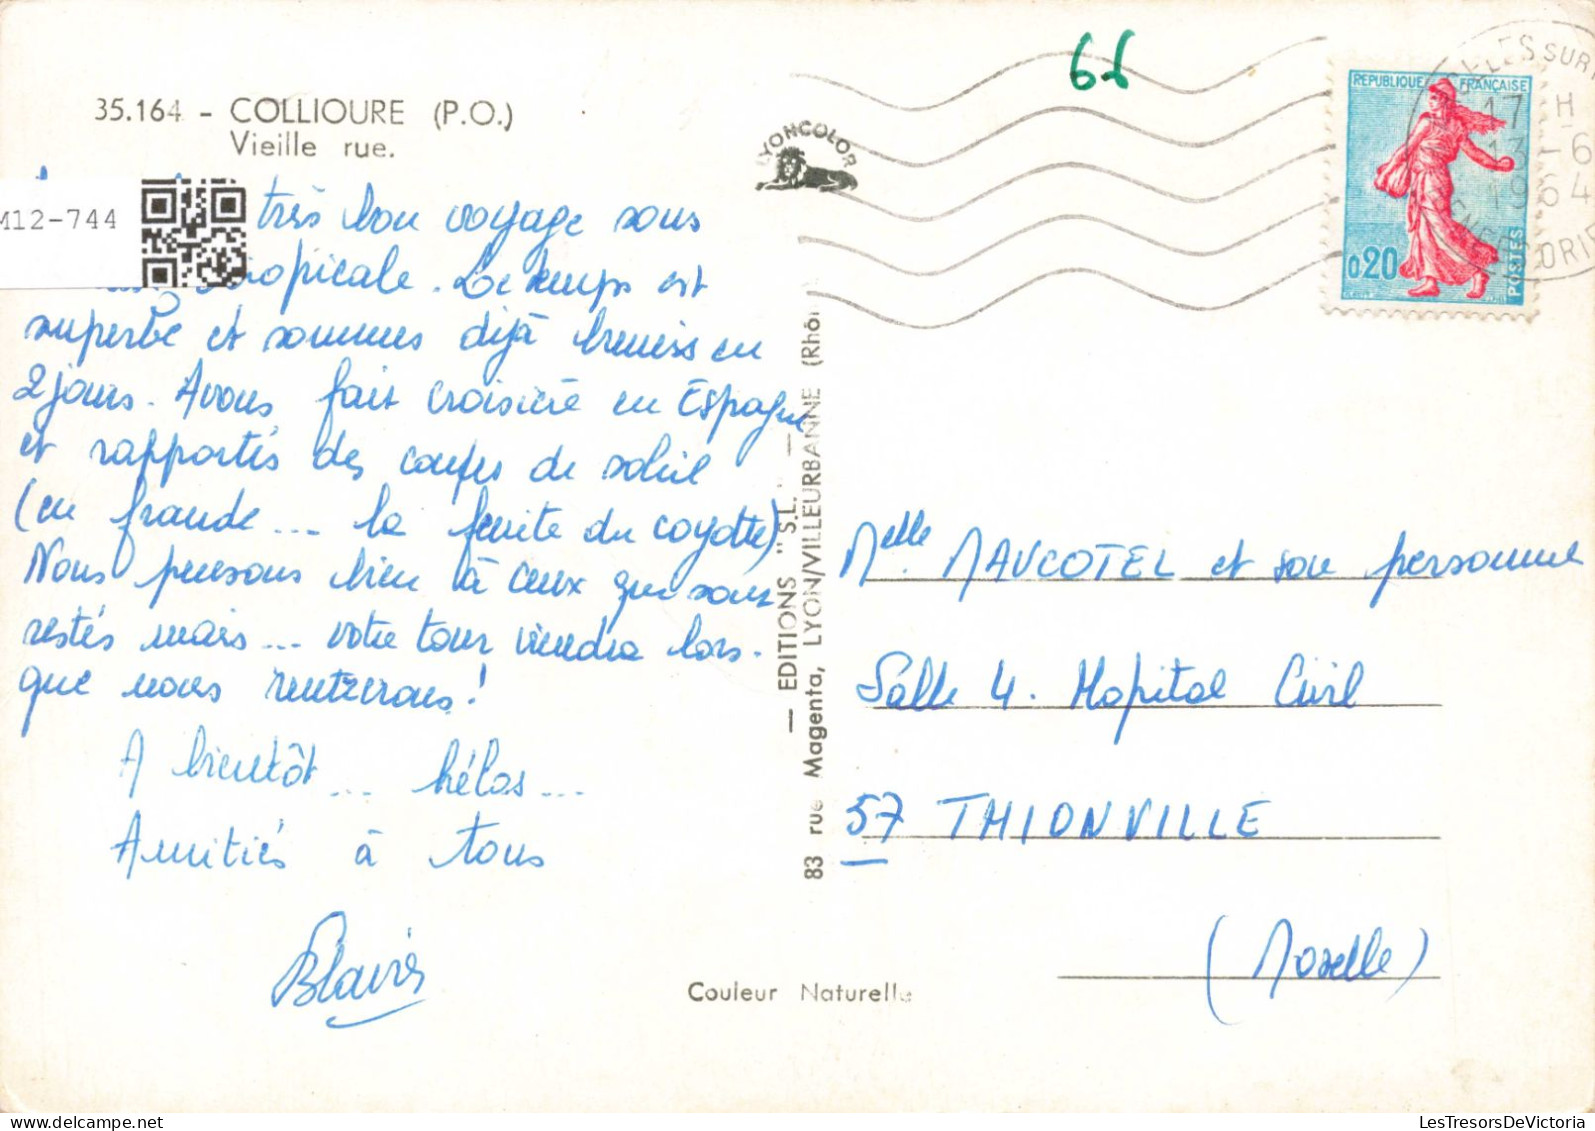 66
35.164 - COLLIOURE (P.O.)
Vieille rue.
LYONCOLOR
REPUBLIQUE FRANÇAISE
0,20
POSTES
17 H
13 - 6
1964
M12-744
très bon voyage sous
tropicale. Le temps est
superbe et sommes déjà brunis en
2 jours. Avons fait croisière en Espagne
et rapportés des coups de soleil
(en fraude... la fuite du coyotte)
Nous pensons bien à ceux qui sont
restés mais... votre tour viendra lors-
que nous rentrerons!
A bientôt... hélas...
Amitiés à tous
— EDITIONS "S.L." —
83 rue Magenta, LYON/VILLEURBANNE (Rhô
Melle. MAUCOTEL et son personnel
Salle 4. Hopital Civil
57 THIONVILLE
(Moselle)
Couleur Naturelle
www.delcampe.net
LesTresorsDeVictoria